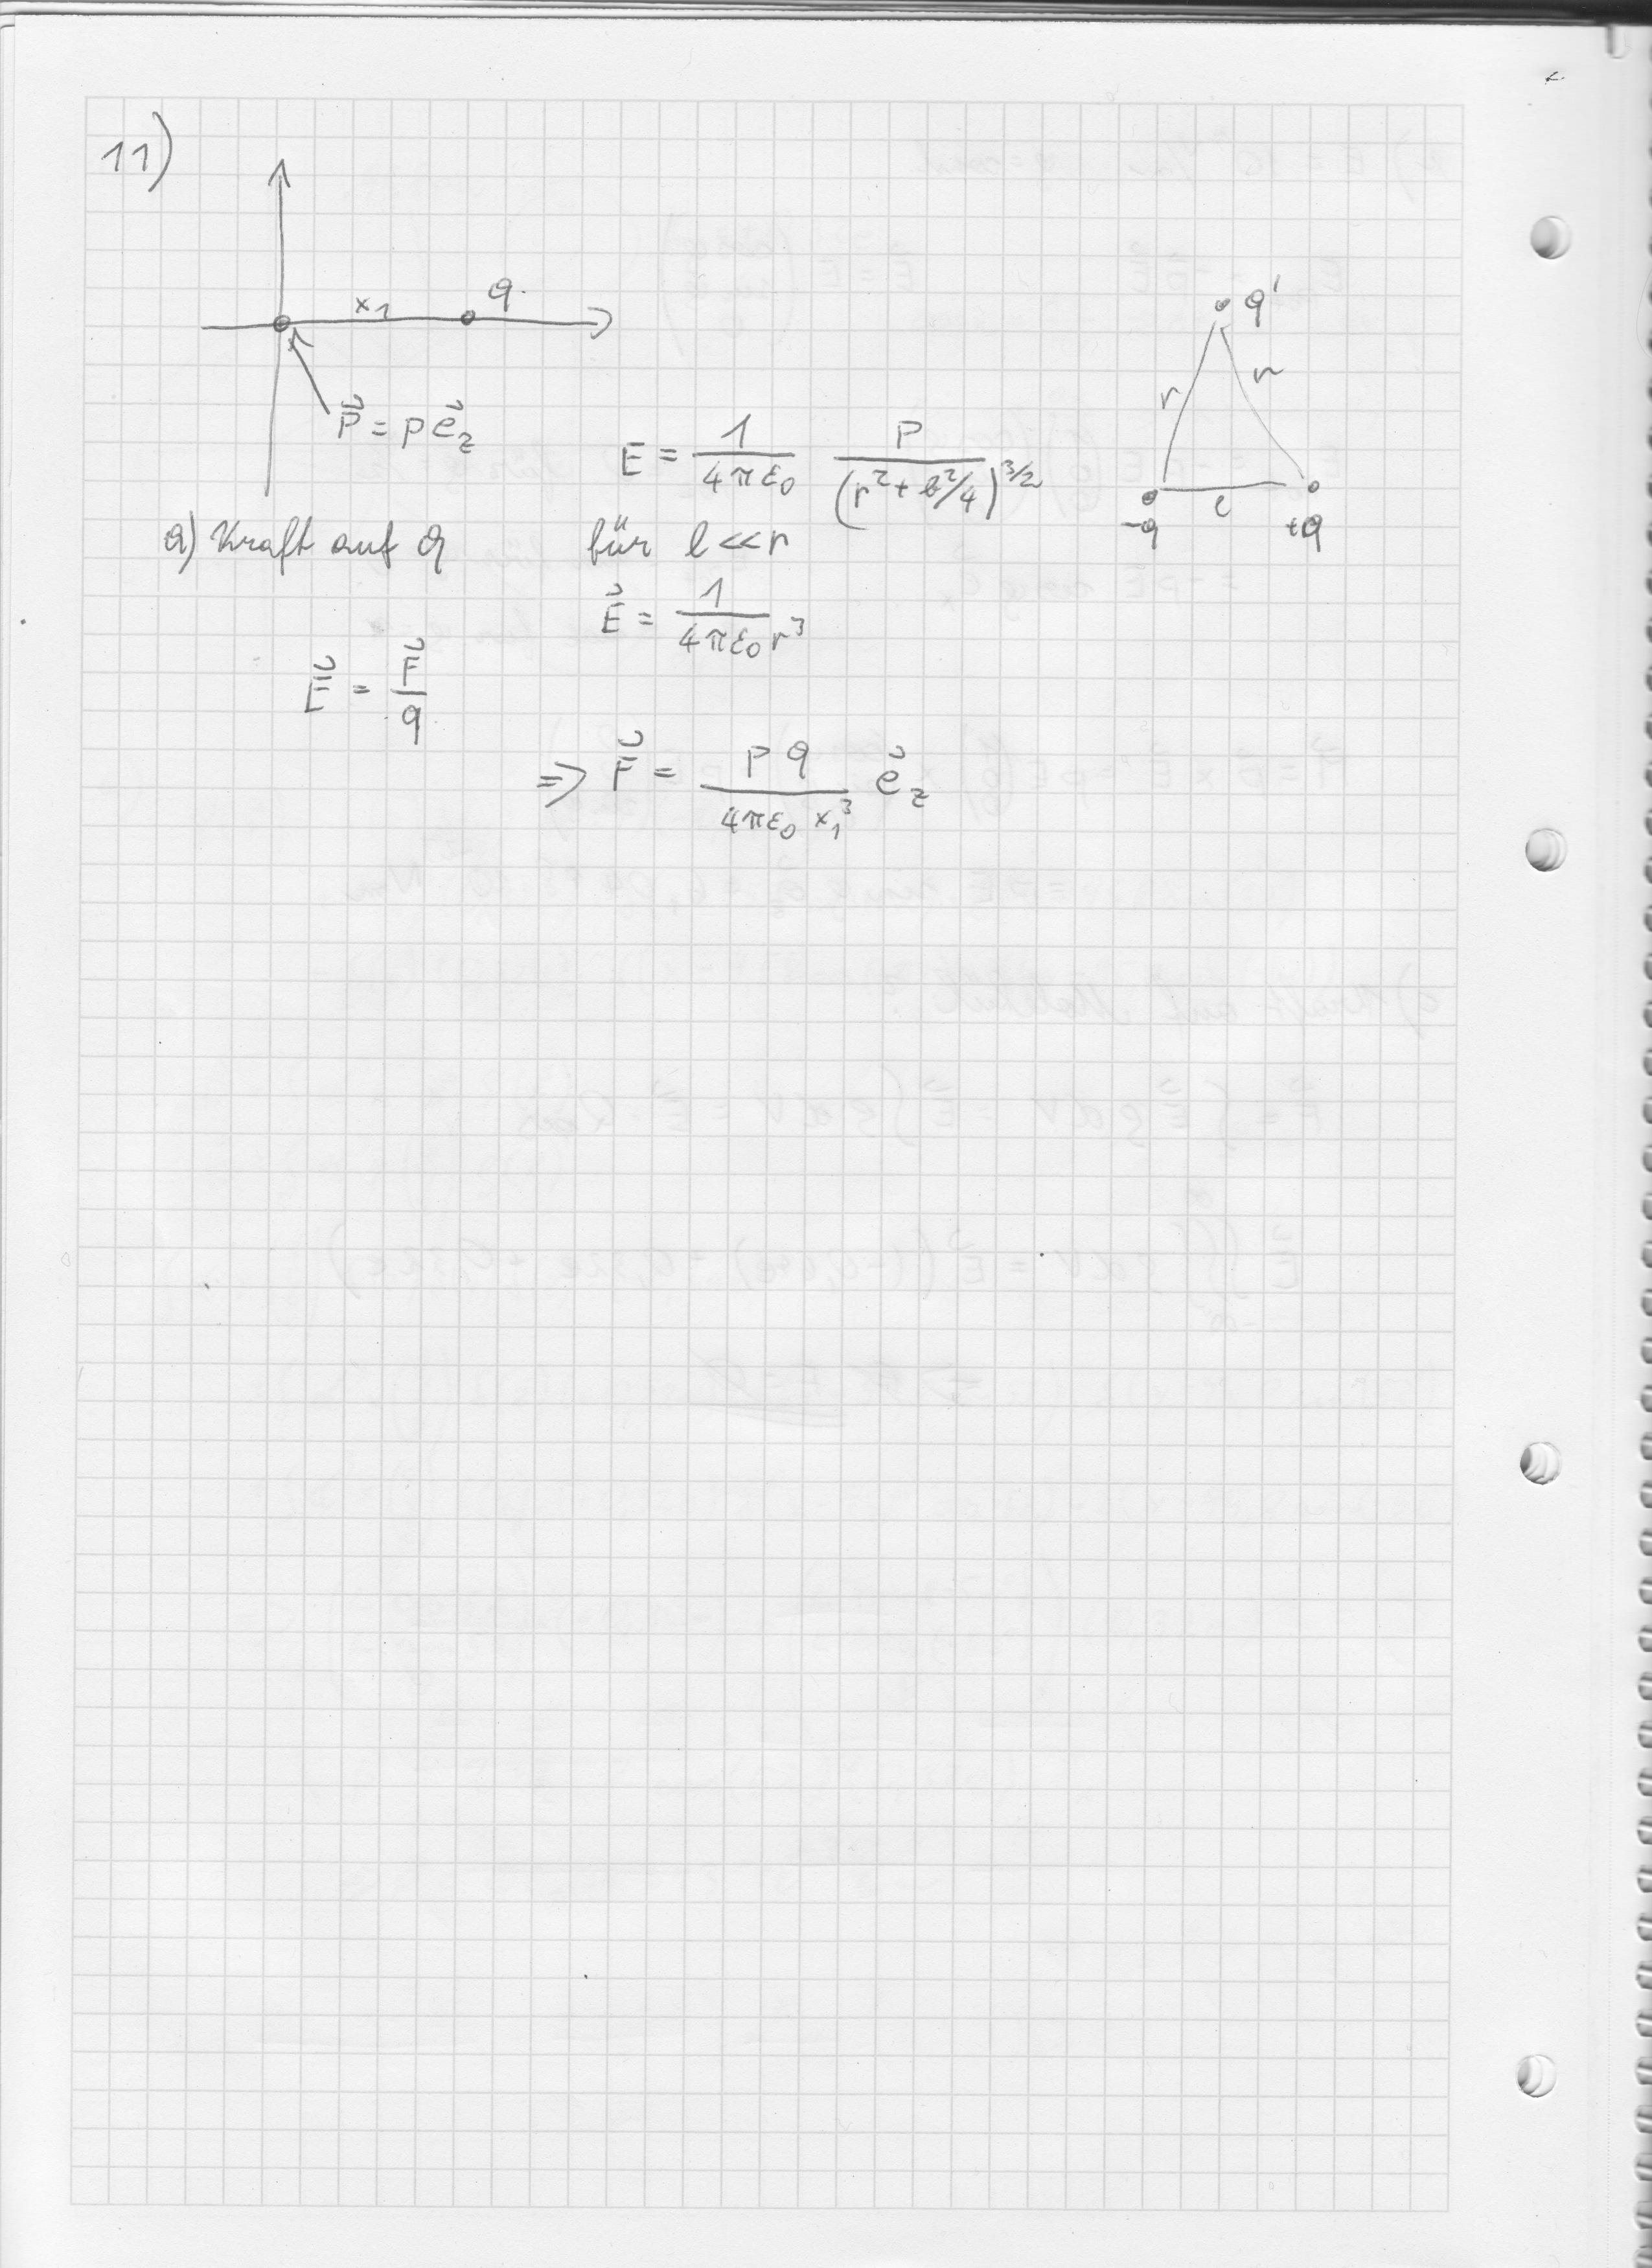 11)
x₁ q
q'
r r
l
-q +q
p⃗ = p e⃗_z
E = 1/(4πε₀) p/(r² + l²/4)^(3/2)
a) Kraft auf q
für l << r
E⃗ = 1/(4πε₀ r³)
E⃗ = F⃗/q
=> F⃗ = p q/(4πε₀ x₁³) e⃗_z